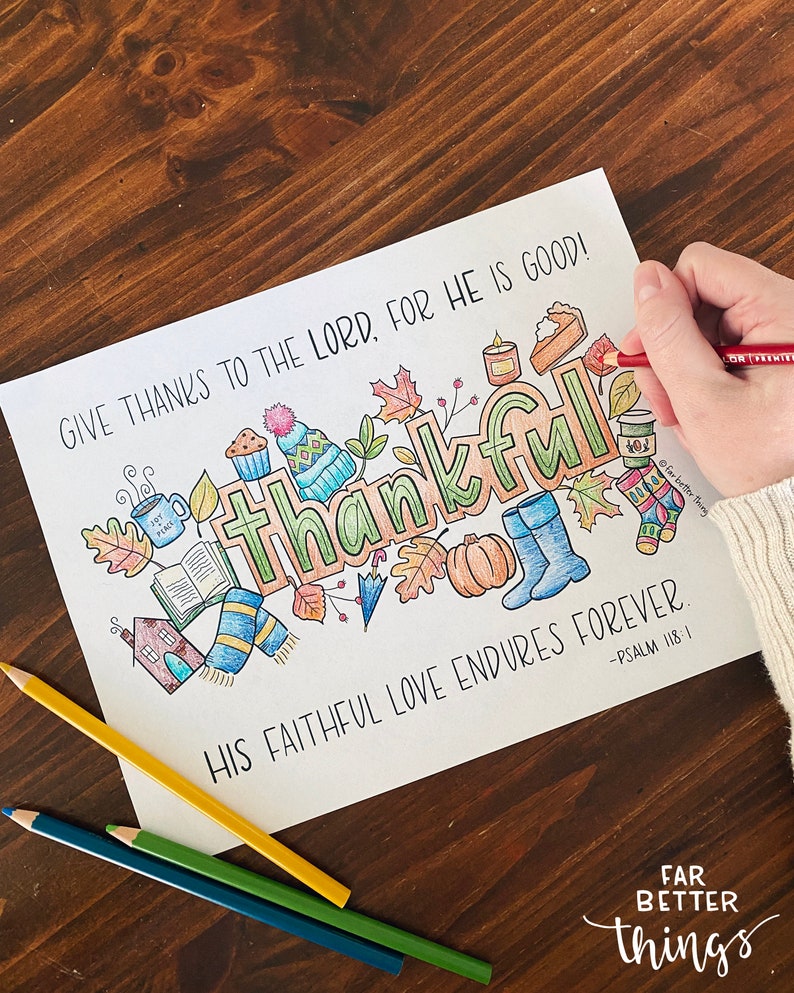 GIVE THANKS TO THE LORD, FOR HE IS GOOD!
JOY
PEACE
thankful
©far better things
HIS FAITHFUL LOVE ENDURES FOREVER.
-PSALM 118:1
FAR
BETTER
things